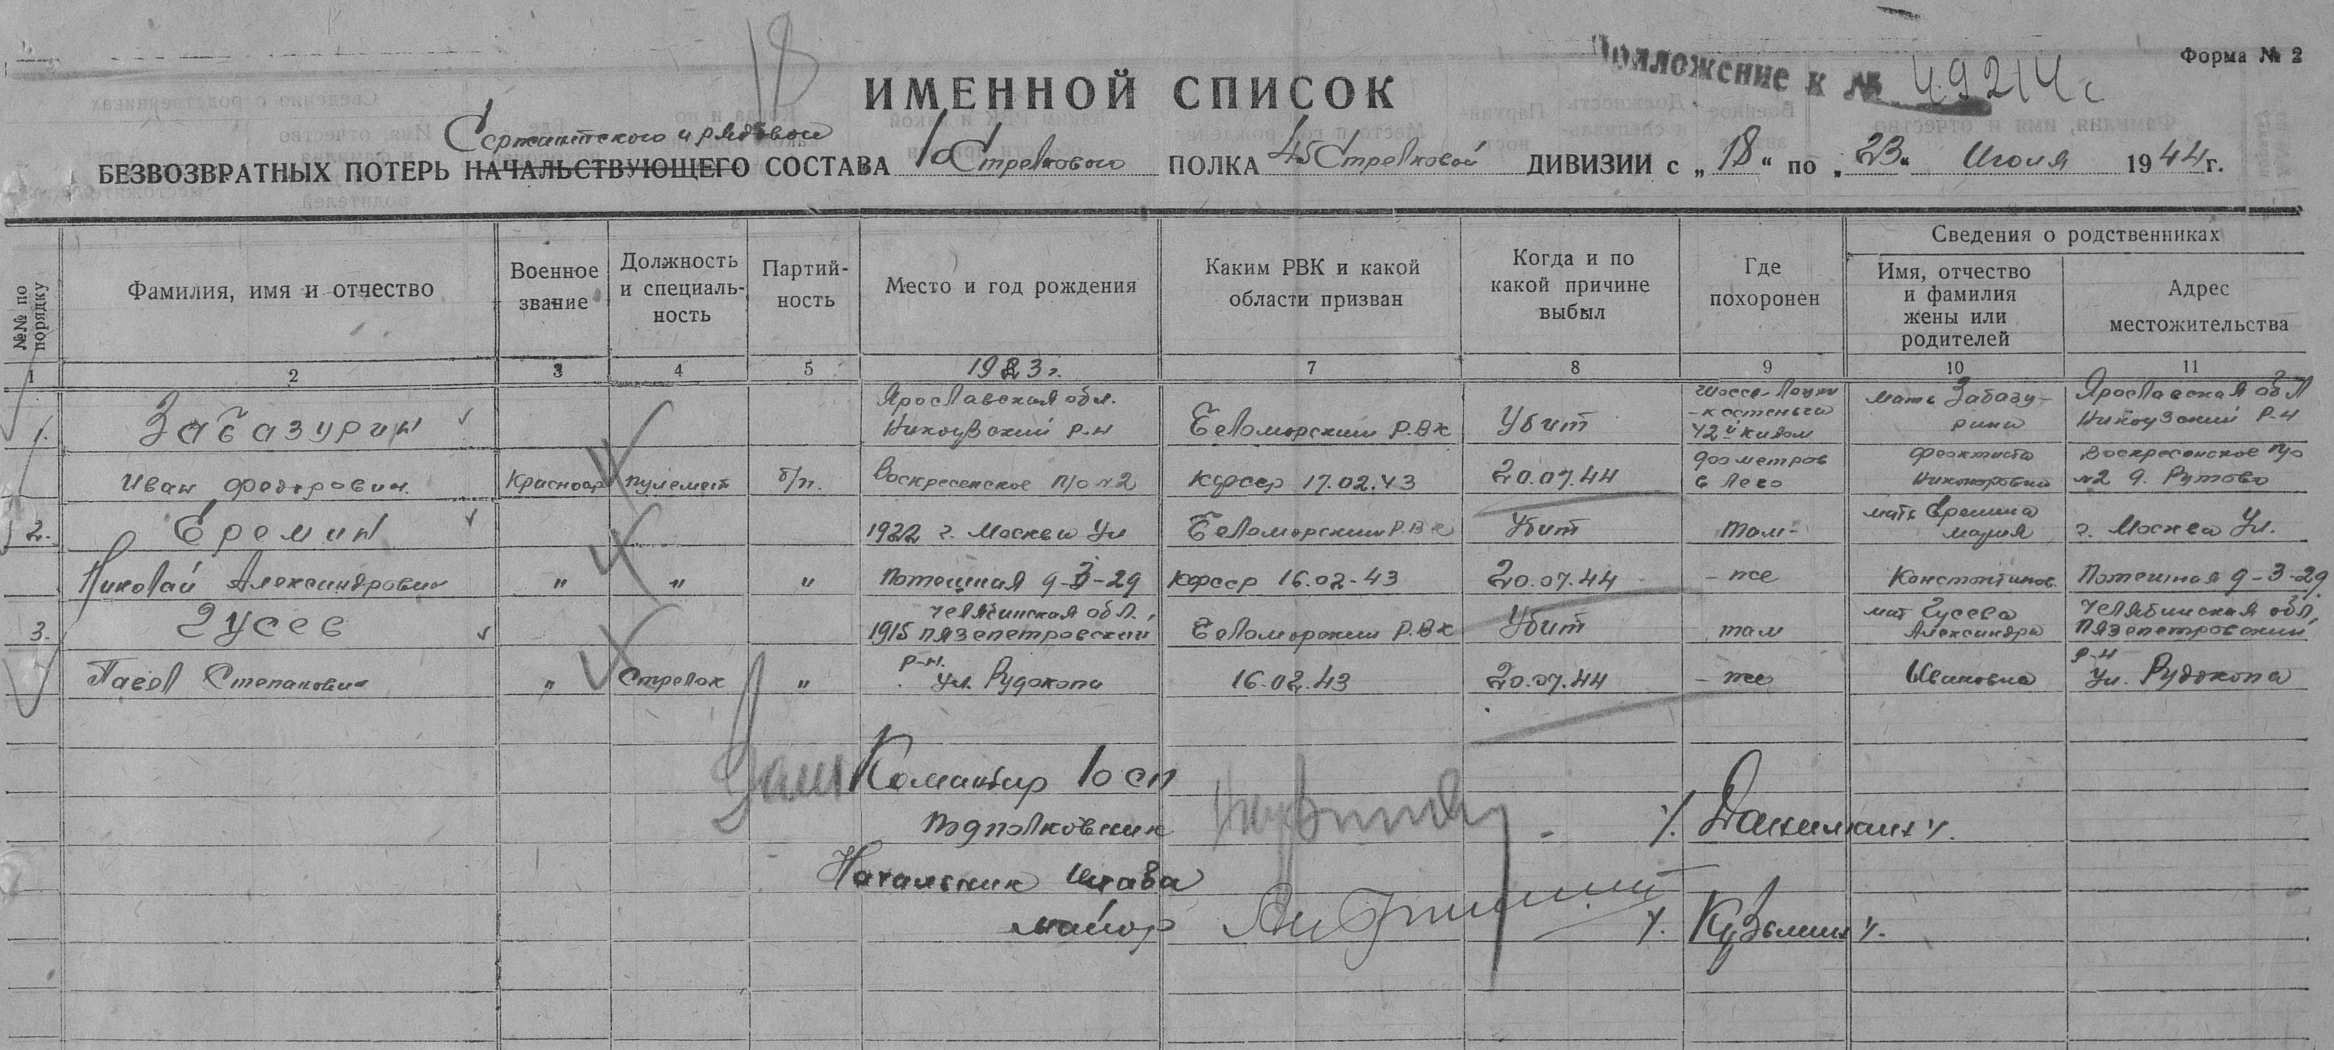 Форма № 2
Приложение к № 49214с
18
ИМЕННОЙ СПИСОК
Сержантского и рядового
БЕЗВОЗВРАТНЫХ ПОТЕРЬ НАЧАЛЬСТВУЮЩЕГО СОСТАВА 10 Стрелкового ПОЛКА 45 Стрелковой ДИВИЗИИ с „18“ по „23“ Июля 1944 г.
№№ по порядку
Фамилия, имя и отчество
Военное звание
Должность и специальность
Партий-
ность
Место и год рождения
Каким РВК и какой
области призван
Когда и по
какой причине
выбыл
Где
похоронен
Сведения о родственниках
Имя, отчество
и фамилия
жены или
родителей
Адрес
местожительства
1 2 3 4 5 1923 г. 7 8 9 10 11
1. Забазурин
Иван Федорович
Красноар
пулемет
б/п.
Ярославская обл.
Никоузский р-н
Воскресенское п/о №2
Беломорским Р.В.К
КФССР 17.02.43
Убит
20.07.44
42й килом
900 метров
мать Забазу-
рина
Феоктиста
Никоноровна
Ярославская обл
Никоузский р-н
Воскресенское п/о
№2 д. Рутово
2. Еремин
Николай Александрович
„ „ „
1922 г. Москва ул
Потешная 9-3-29
Беломорским Р.В.К
КФССР 16.02.43
Убит
20.07.44
там-
- же
мать Еремина
Мария
Константинов
г. Москва ул.
Потешная 9-3-29
3. Гусев
Павел Степанович
„ Стрелок „
Челябинская обл.,
1915 Нязепетровский
р-н.
ул. Рудокопа
Беломорским Р.В.К
16.02.43
Убит
20.07.44
там
- же
мат Гусева
Александра
Ивановна
Челябинская обл,
Нязепетровский
р-н
ул. Рудокопа
Командир 10 сп
Подполковник /. Данилкин /.
Начальник штаба
майор /. Кузьмин /.